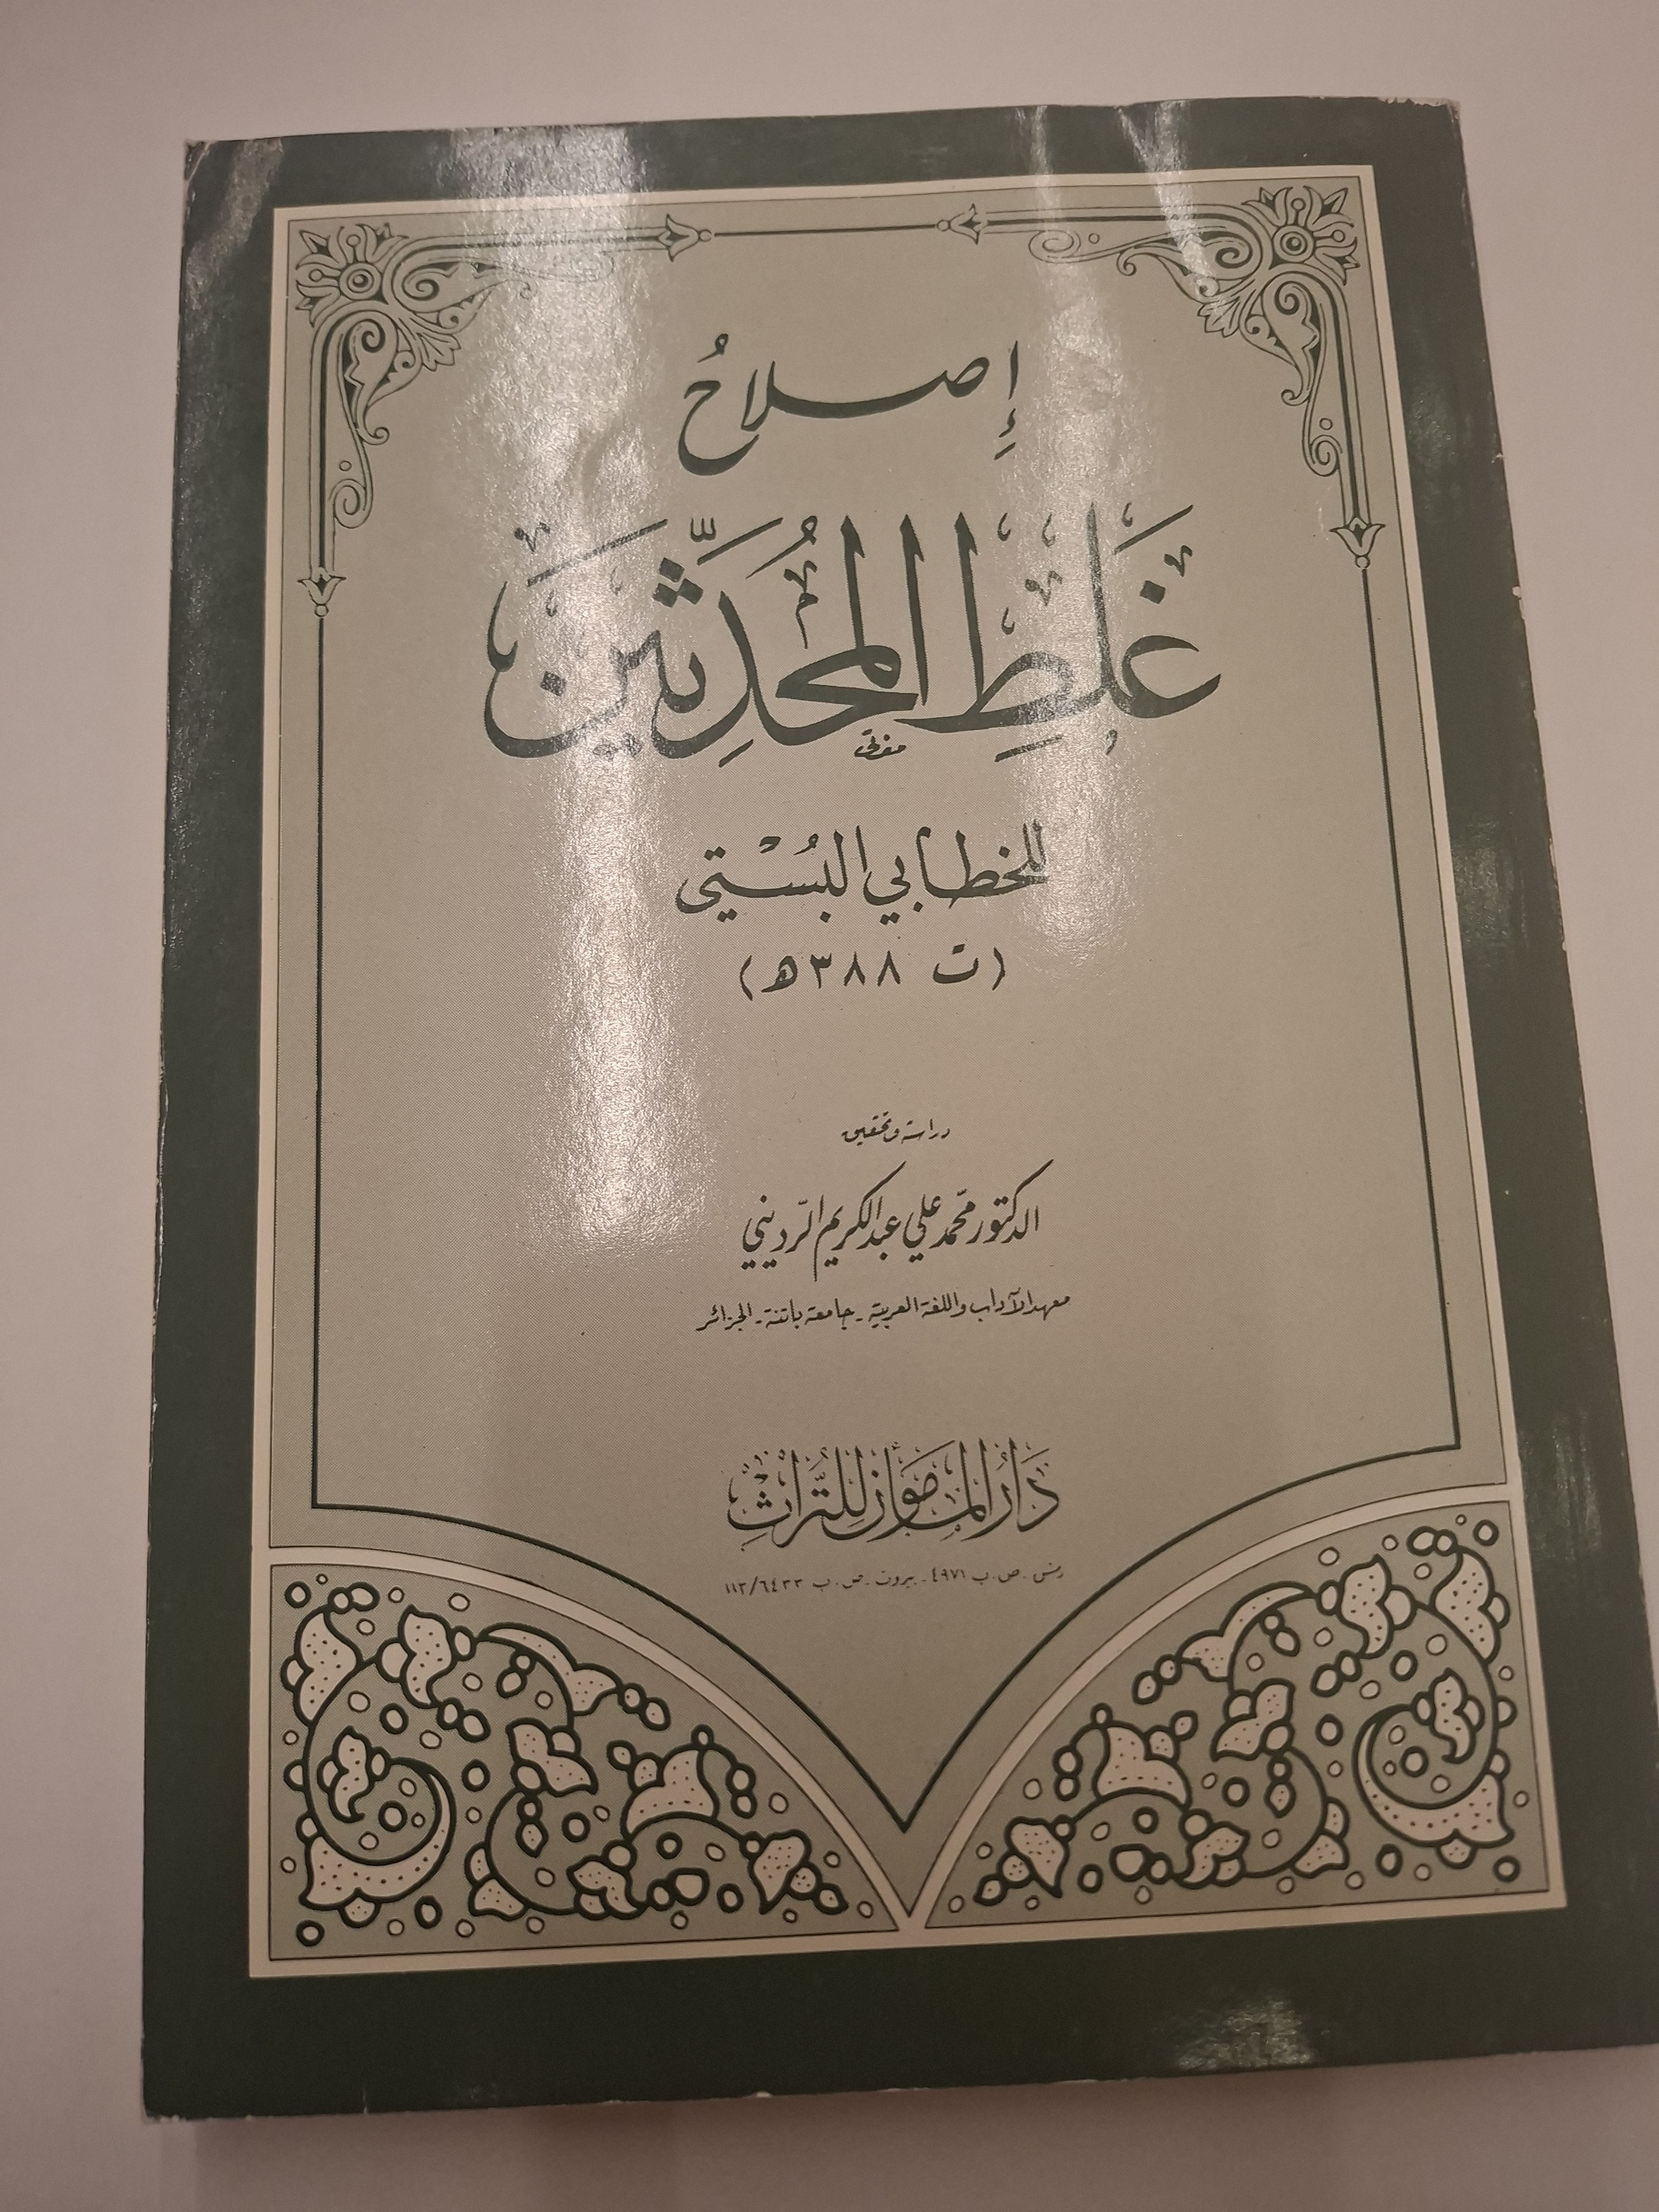 إصلاحُ
غَلَطِ المُحَدِّثِينَ
للخطابي البُسْتي
(ت ٣٨٨ هـ)
دراسة وتحقيق
الدكتور محمّد علي عبد الكريم الرّديني
معهد الآداب واللغة العربية - جامعة باتنة - الجزائر
دَارُ المَأمُون لِلتُّراثْ
دمشق - ص.ب ٤٩٧١ - بيروت - ص.ب ١١٣/٦٤٣٣